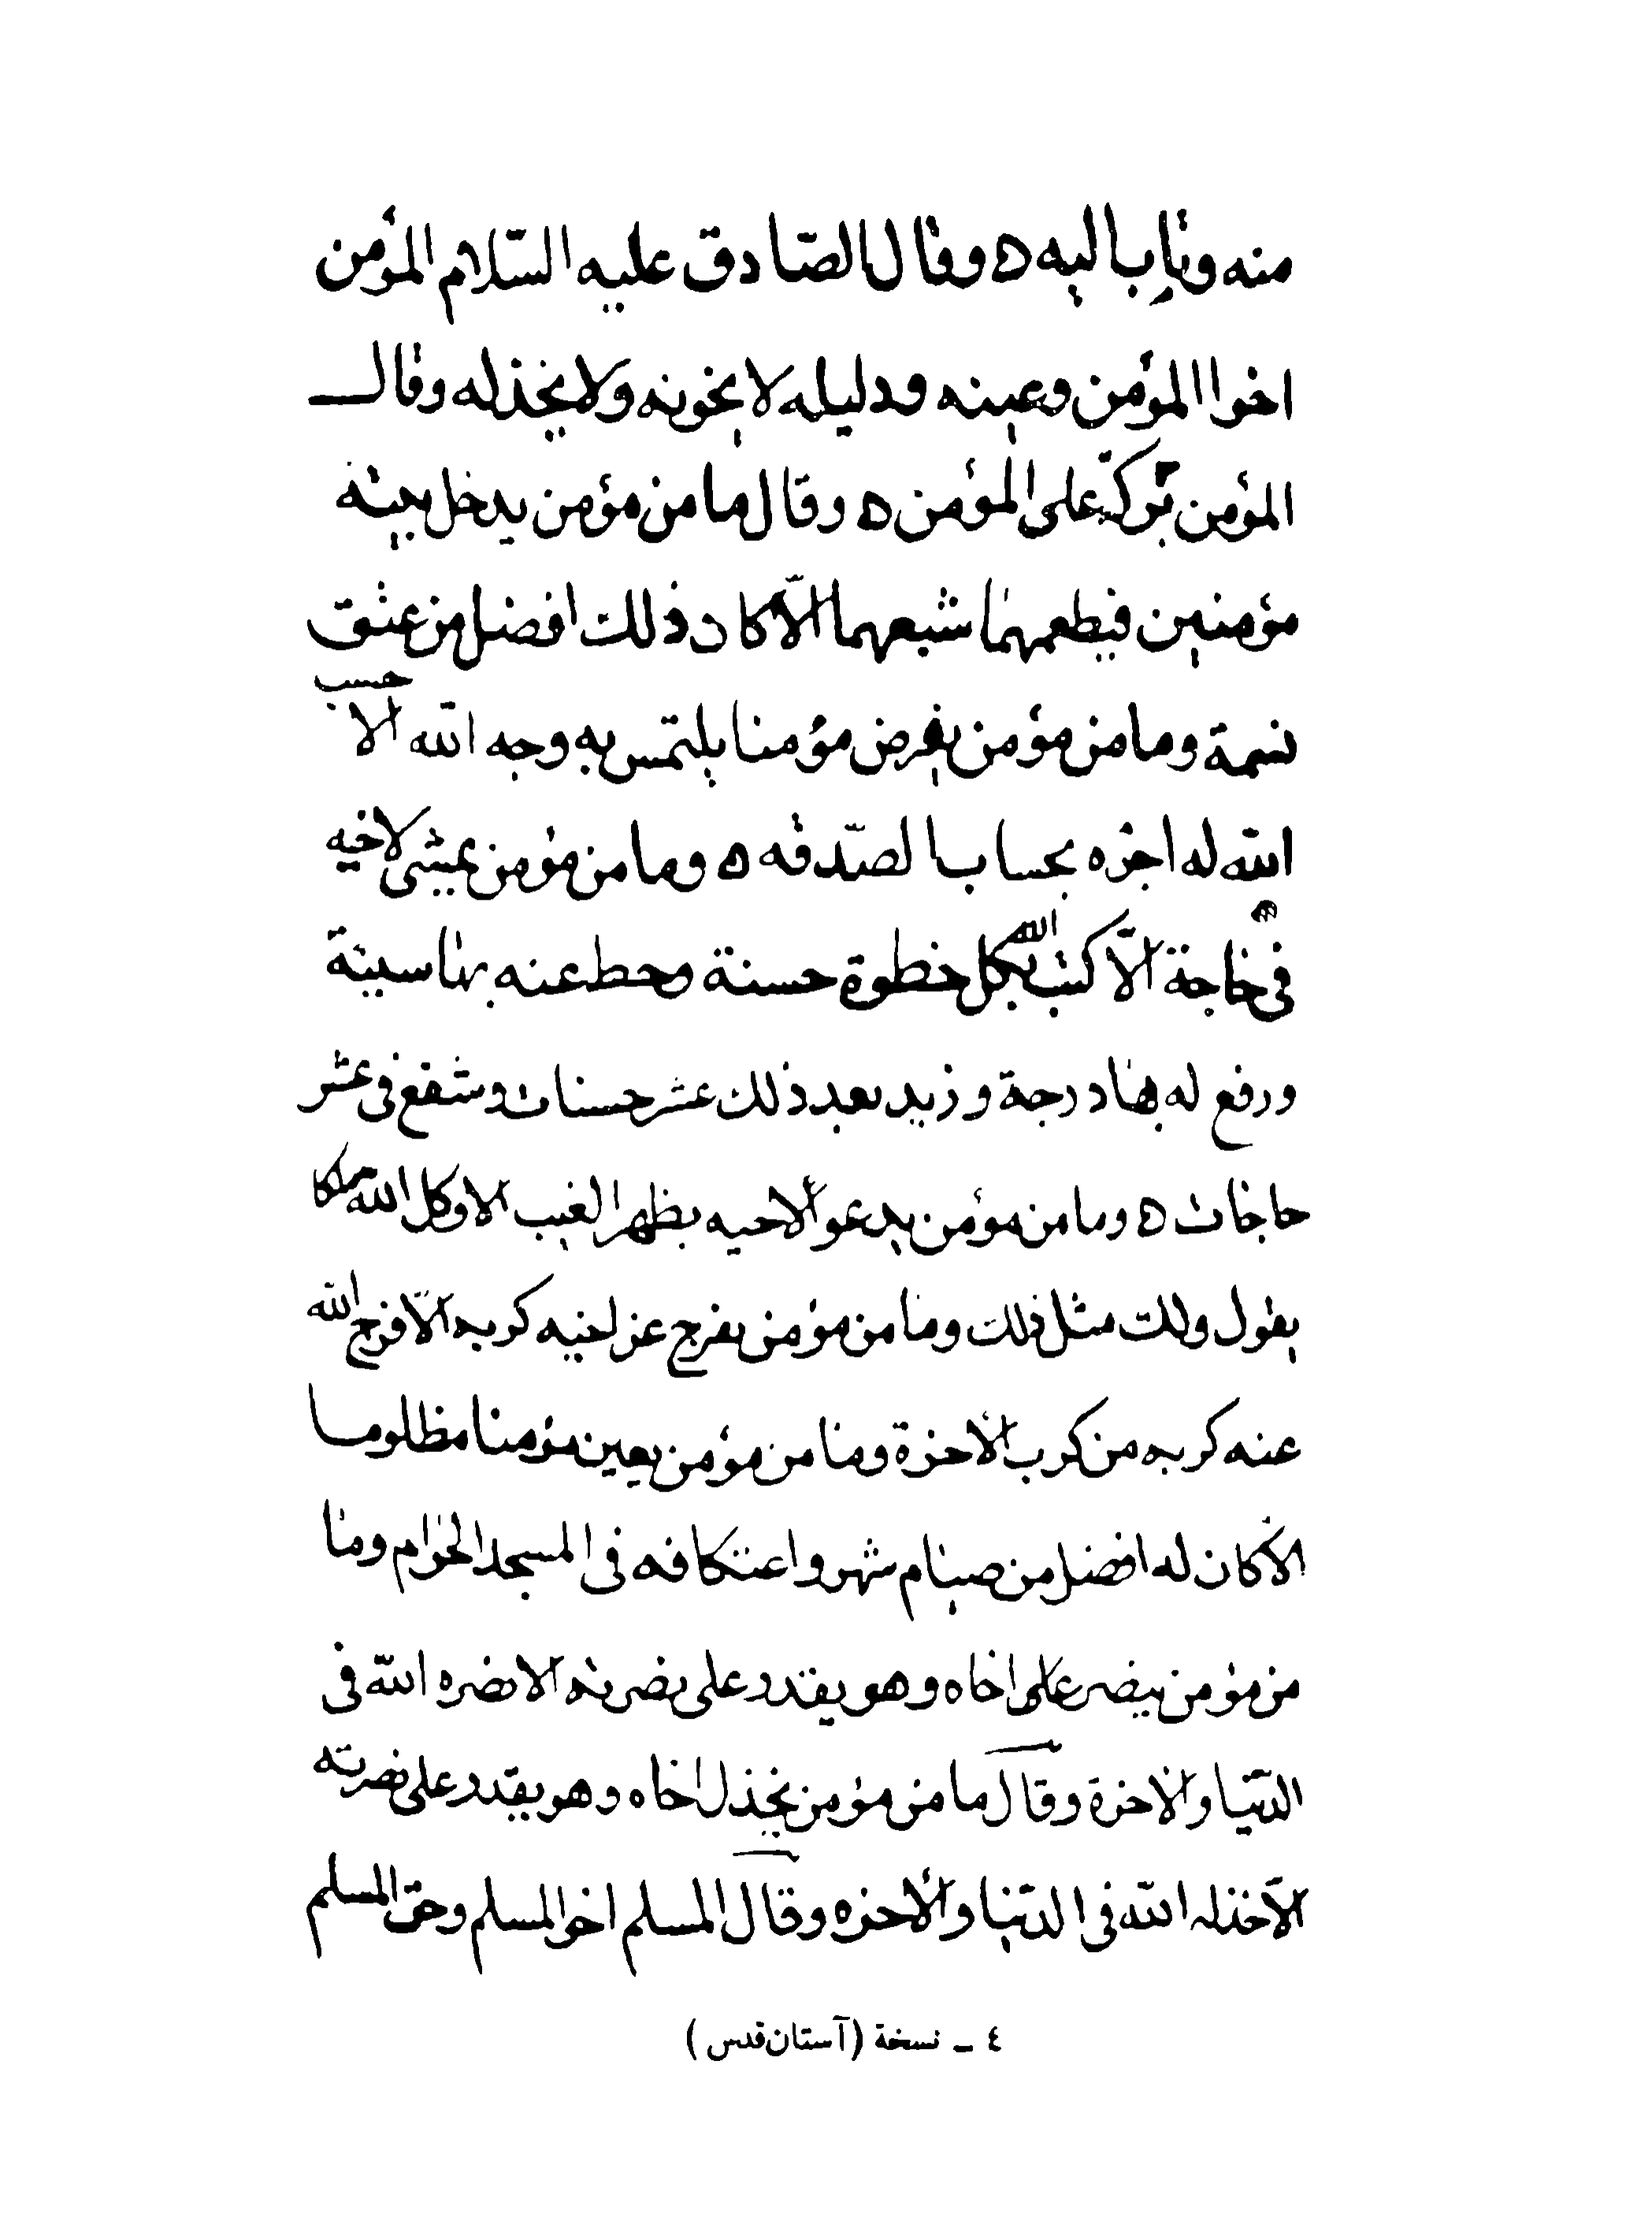 منه وناب اليه ه وقال الصّادق عليه السّلام المؤمن
اخوا المؤمن وعينه ودليله لا يخونه ولا يخذله وقال
المؤمن بركة على المؤمن ه وقال ما من مؤمن يدخل بيته
مؤمنين فيطعمهما شبعهما الّا كان ذلك افضل من عتق
نسمة وما من مؤمن يقرض مؤمنا يلتمس به وجه الله الا حسب
الله له اجره بحساب الصّدقه ه وما من مؤمن يمشى لاخيه
فى حاجة الّا كتب الله بكل خطوة حسنة وحط عنه بها سيئة
ورفع له بها درجة وزيد بعد ذلك عشر حسنات وشفع فى عشر
حاجات ه وما من مؤمن يدعو لاخيه بظهر الغيب الا وكل الله ملكا
يقول ولك مثل ذلك وما من مؤمن يفرج عن اخيه كربه الّا فرج الله
عنه كربه من كرب الاخرة وما من مؤمن يعين مؤمنا مظلوما
الا كان له افضل من صيام شهر واعتكافه فى المسجد الحرام وما
من مؤمن ينصر على اخاه وهو يقدر على نصرته الا نصره الله فى
الدّنيا والاخرة وقال ما من مؤمن يخذل اخاه وهو يقدر على نصرته
الّا خذله الله فى الدّنيا والاخره وقال المسلم اخو المسلم وحق المسلم
٤ ـ نسخة (آستان قدس)